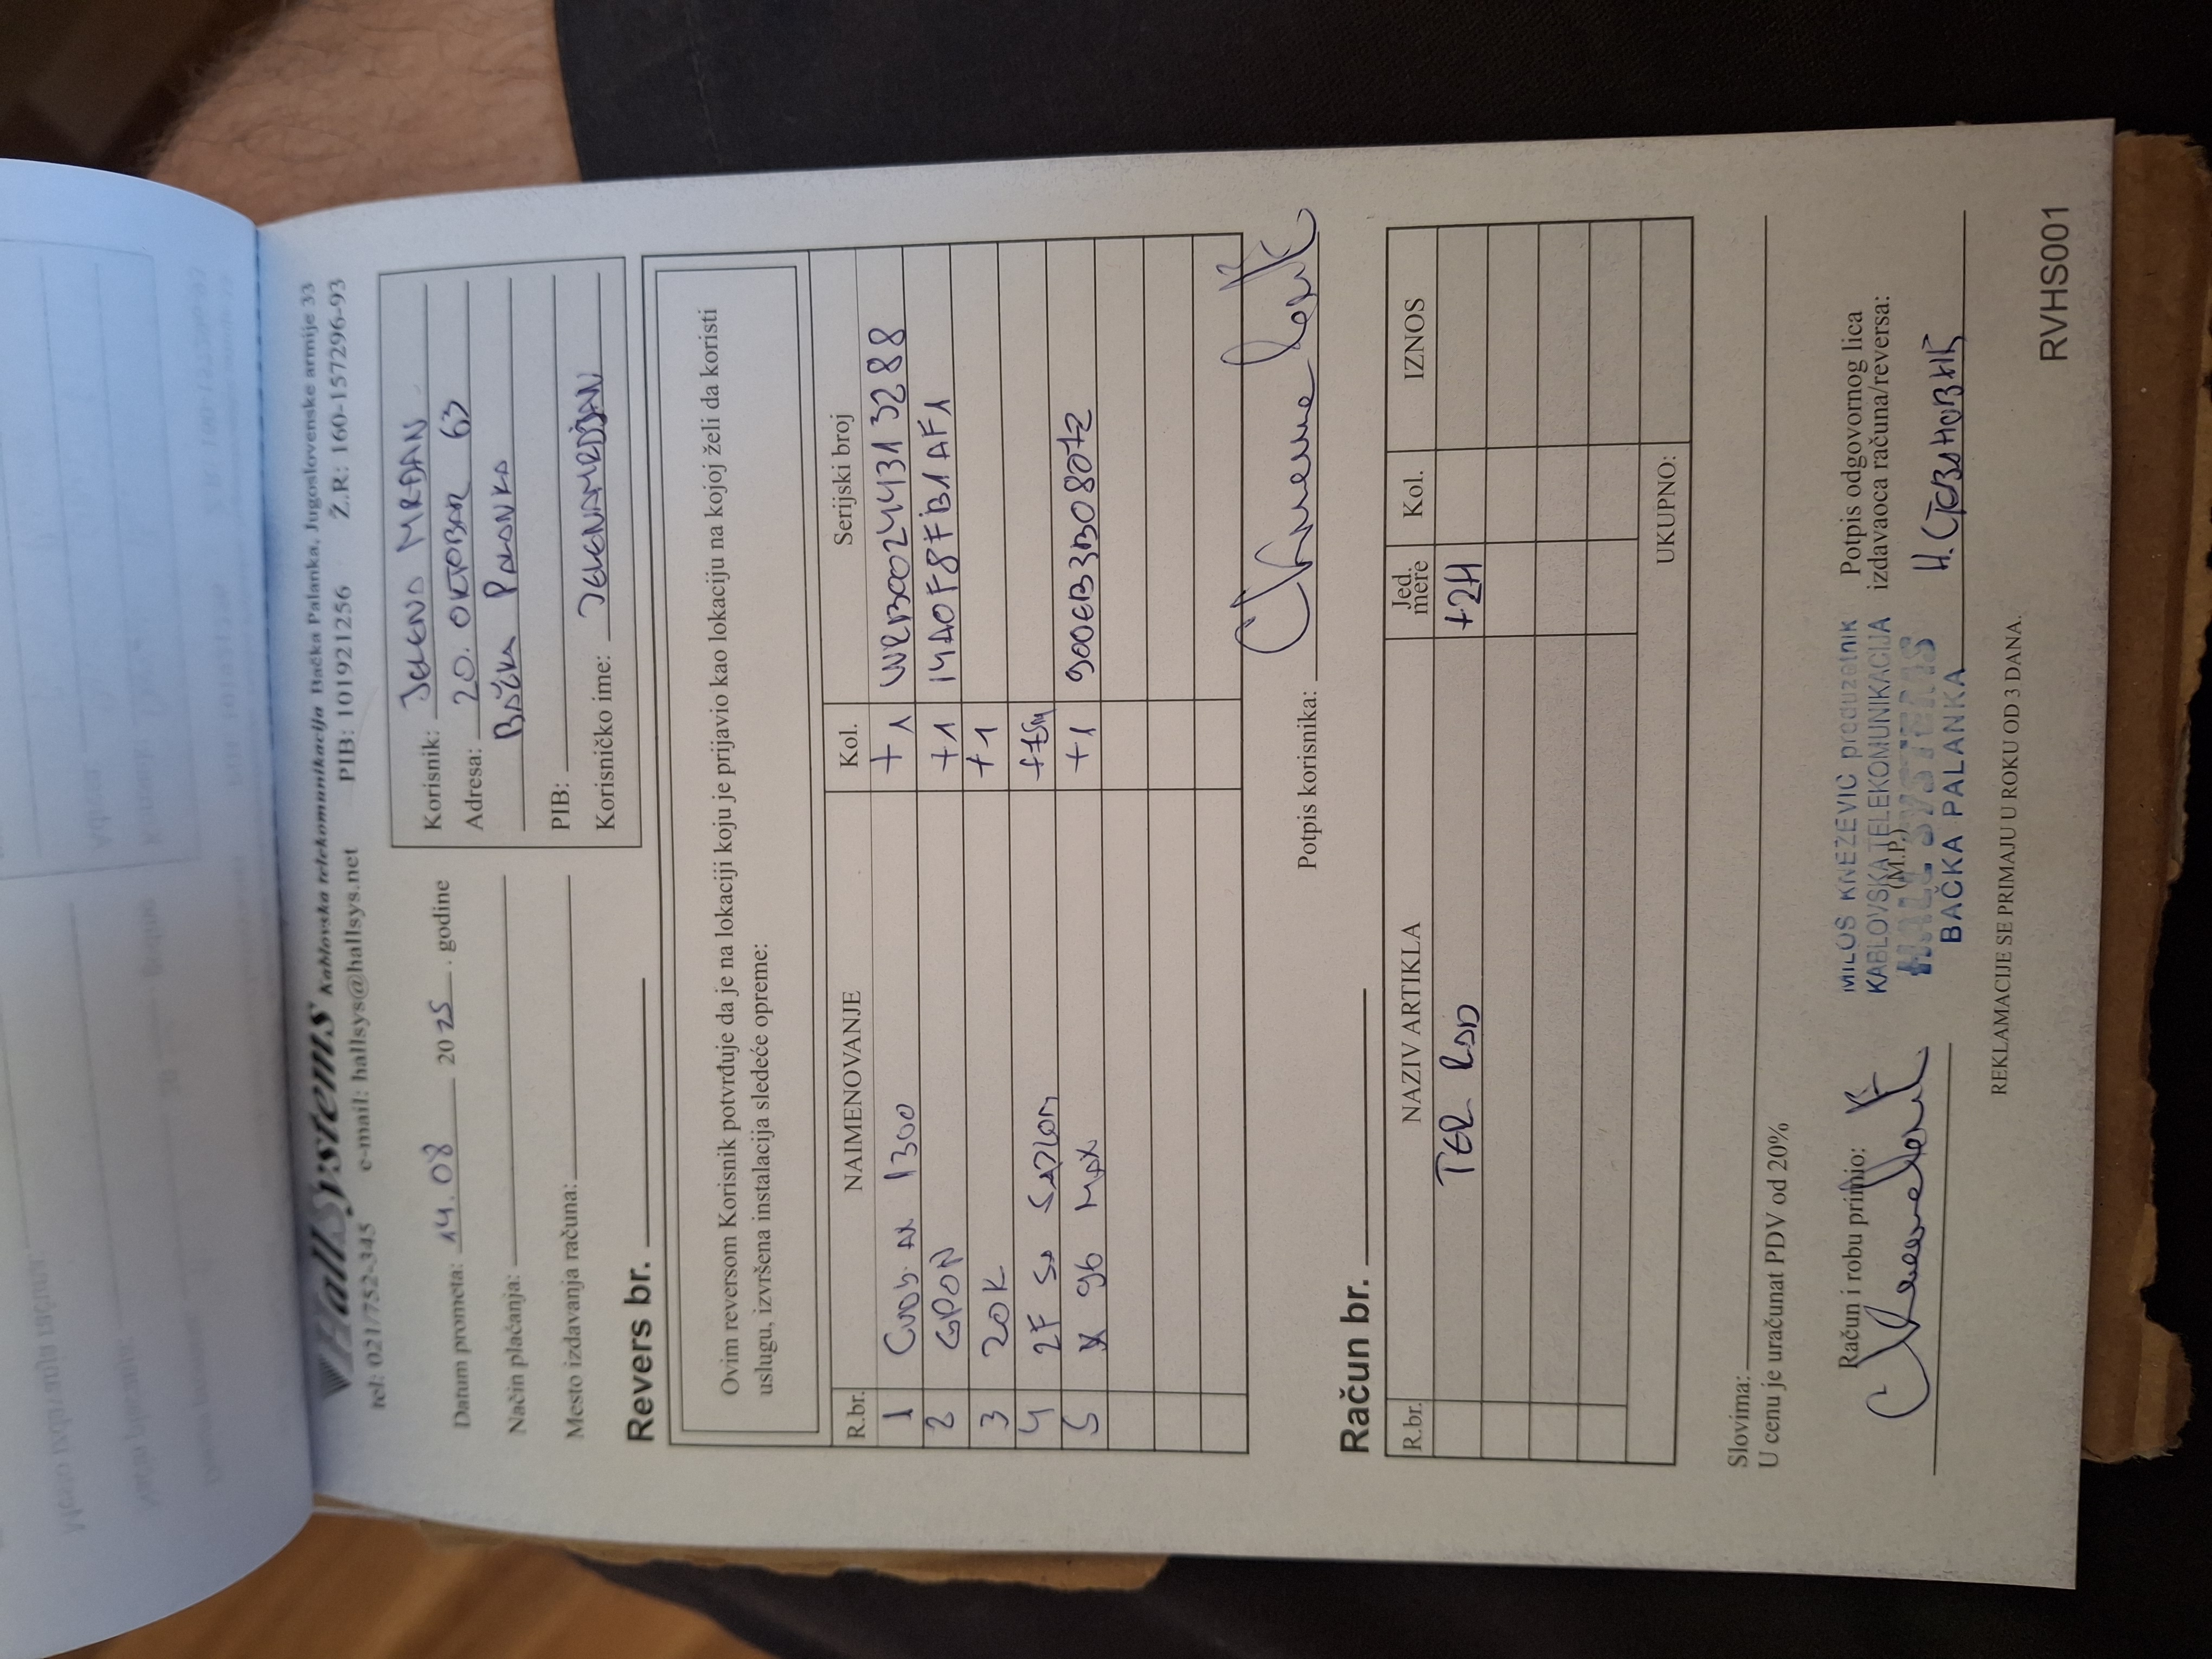 HallSystems Kablovska telekomunikacija Bačka Palanka, Jugoslovenske armije 33
tel: 021/752-345 e-mail: hallsys@hallsys.net PIB: 101921256 Ž.R: 160-157296-93
Datum prometa: 14.08 2025. godine
Način plaćanja:
Mesto izdavanja računa:
Korisnik: JELENA MRĐAN
Adresa: 20. OKTOBAR 63
BAČKA PALANKA
PIB:
Korisničko ime: JELENAMRDJAN
Revers br.
Ovim reversom Korisnik potvrđuje da je na lokaciji koju je prijavio kao lokaciju na kojoj želi da koristi
uslugu, izvršena instalacija sledeće opreme:
R.br. NAIMENOVANJE Kol. Serijski broj
1 CUDY AX 1300 +1 WR300244313288
2 GPON +1 14A0F8FB1AF1
3 ZOK +1
4 2F SA SAJLOM +75m
5 X 96 MAX +1 900EB3B08072
Potpis korisnika:
Račun br.
R.br. NAZIV ARTIKLA Jed. mere Kol. IZNOS
TER RAD +2H
UKUPNO:
Slovima:
U cenu je uračunat PDV od 20%
Račun i robu primio:
MILOŠ KNEŽEVIĆ preduzetnik
KABLOVSKA TELEKOMUNIKACIJA
(M.P.)
HALL SYSTEMS
BAČKA PALANKA
Potpis odgovornog lica
izdavaoca računa/reversa:
Н. СТЕВАНОВИЋ
REKLAMACIJE SE PRIMAJU U ROKU OD 3 DANA.
RVHS001